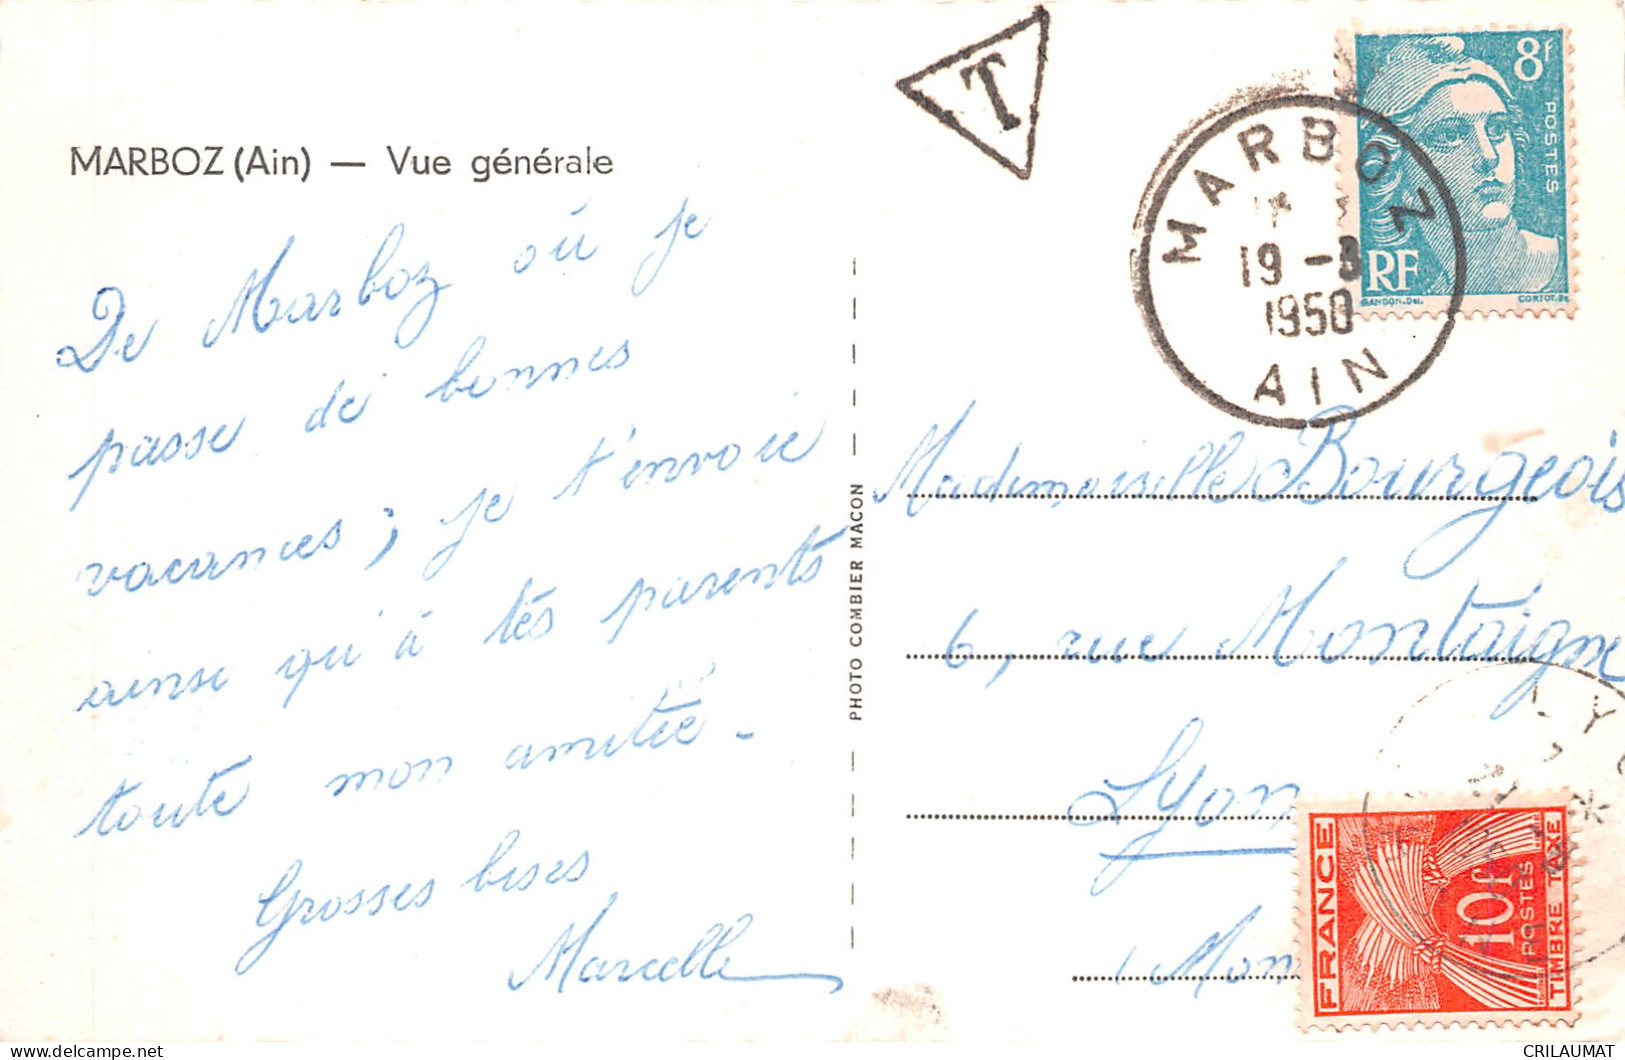 MARBOZ (Ain) — Vue générale
De Marboz où je
passe de bonnes
vacances, je t'envoie
ainsi qu'à tes parents
toute mon amitié -
Grosses bises
Marcelle
PHOTO COMBIER MACON
T
MARBOZ
19 -8
1950
AIN
8f
POSTES
RF
GANDON.Del.
CORTOT.Sc
Mademoiselle Bourgeois
6, rue Montaigne
Lyon
FRANCE
10f
POSTES
TIMBRE TAXE
CRILAUMAT
delcampe.net